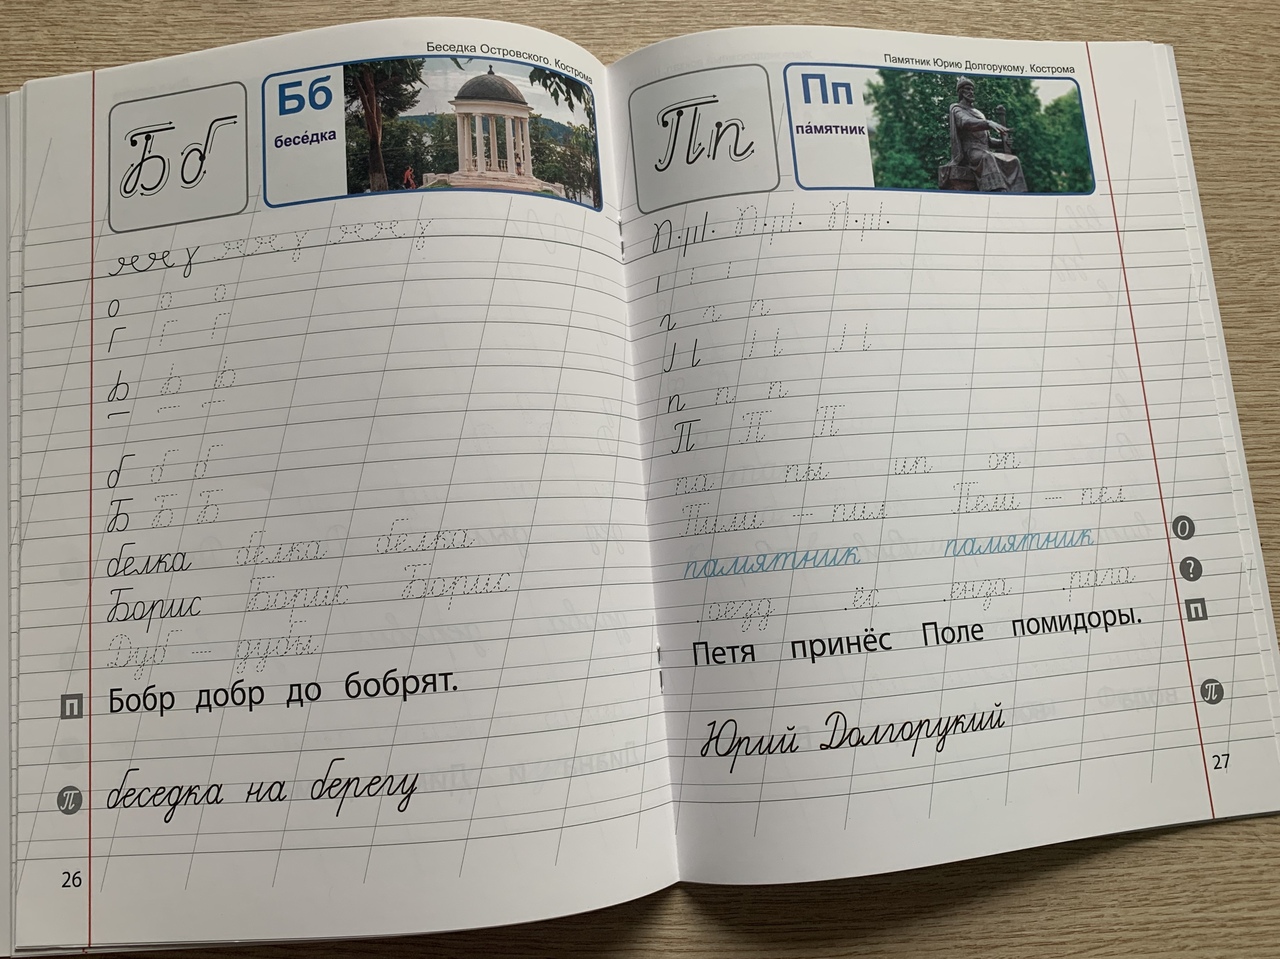 Беседка Островского. Кострома
Бб
Бб
бесе́дка
о о о
г г г
ь ь ь
б б б
Б Б Б
белка белка белка
Борис Борис Борис
Дуб – дубы
п Бобр добр до бобрят.
П беседка на берегу
26
Памятник Юрию Долгорукому. Кострома
Пп
Пп
па́мятник
п п п
П П П
па пы ип оп
Пили – пил Пели – пел
памятник памятник О
?
Петя принёс Поле помидоры. п
Юрий Долгорукий П
27